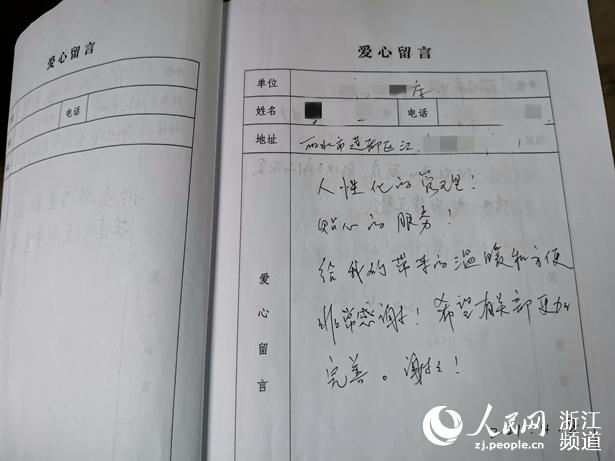 爱心留言
电话
爱心留言
单位
姓名
电话
地址
丽水市莲都区江
人性化的管理!
贴心的服务!
给我们带来的温暖和方便
非常感谢!希望有关部更加
完善。谢谢!
爱心留言
人民网 浙江频道
zj.people.cn